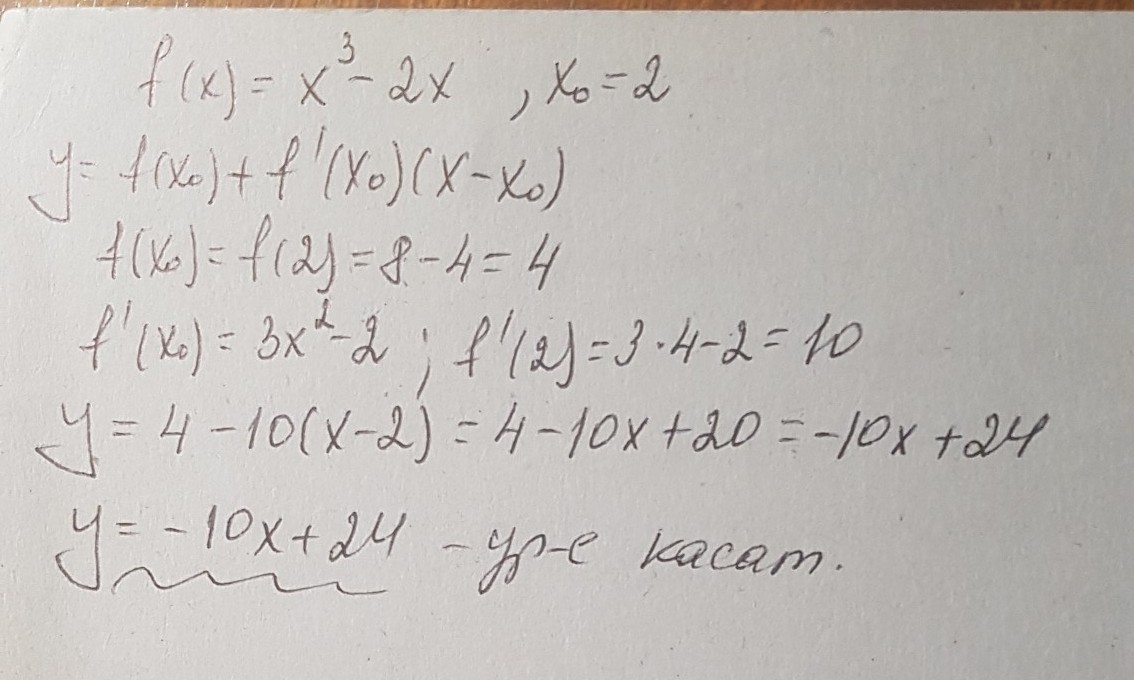 f(x) = x³ - 2x , x₀ = 2
y = f(x₀) + f'(x₀)(x - x₀)
f(x₀) = f(2) = 8 - 4 = 4
f'(x₀) = 3x² - 2 ; f'(2) = 3·4 - 2 = 10
y = 4 - 10(x - 2) = 4 - 10x + 20 = -10x + 24
y = -10x + 24 - ур-е касат.